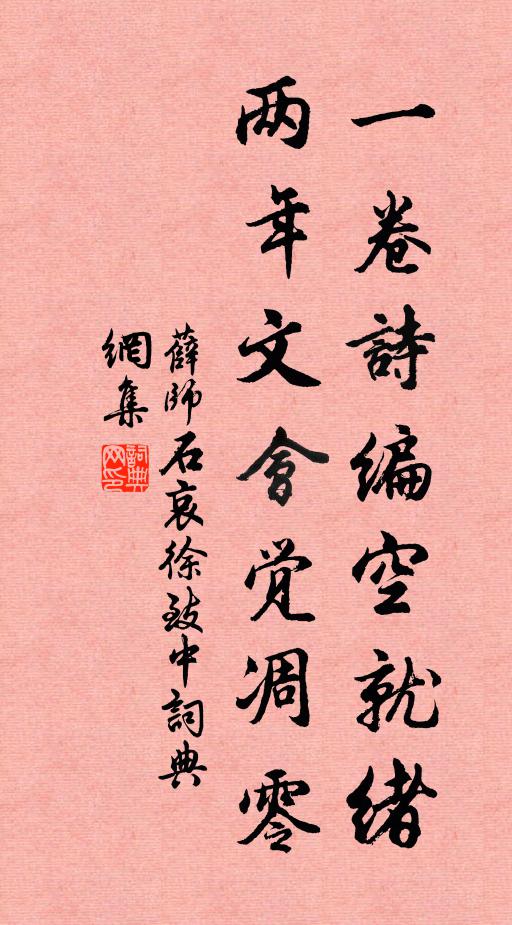 一卷詩编空就緒
两年文會觉凋零
薛師石哀徐致中詞典
網集
詞典
网印